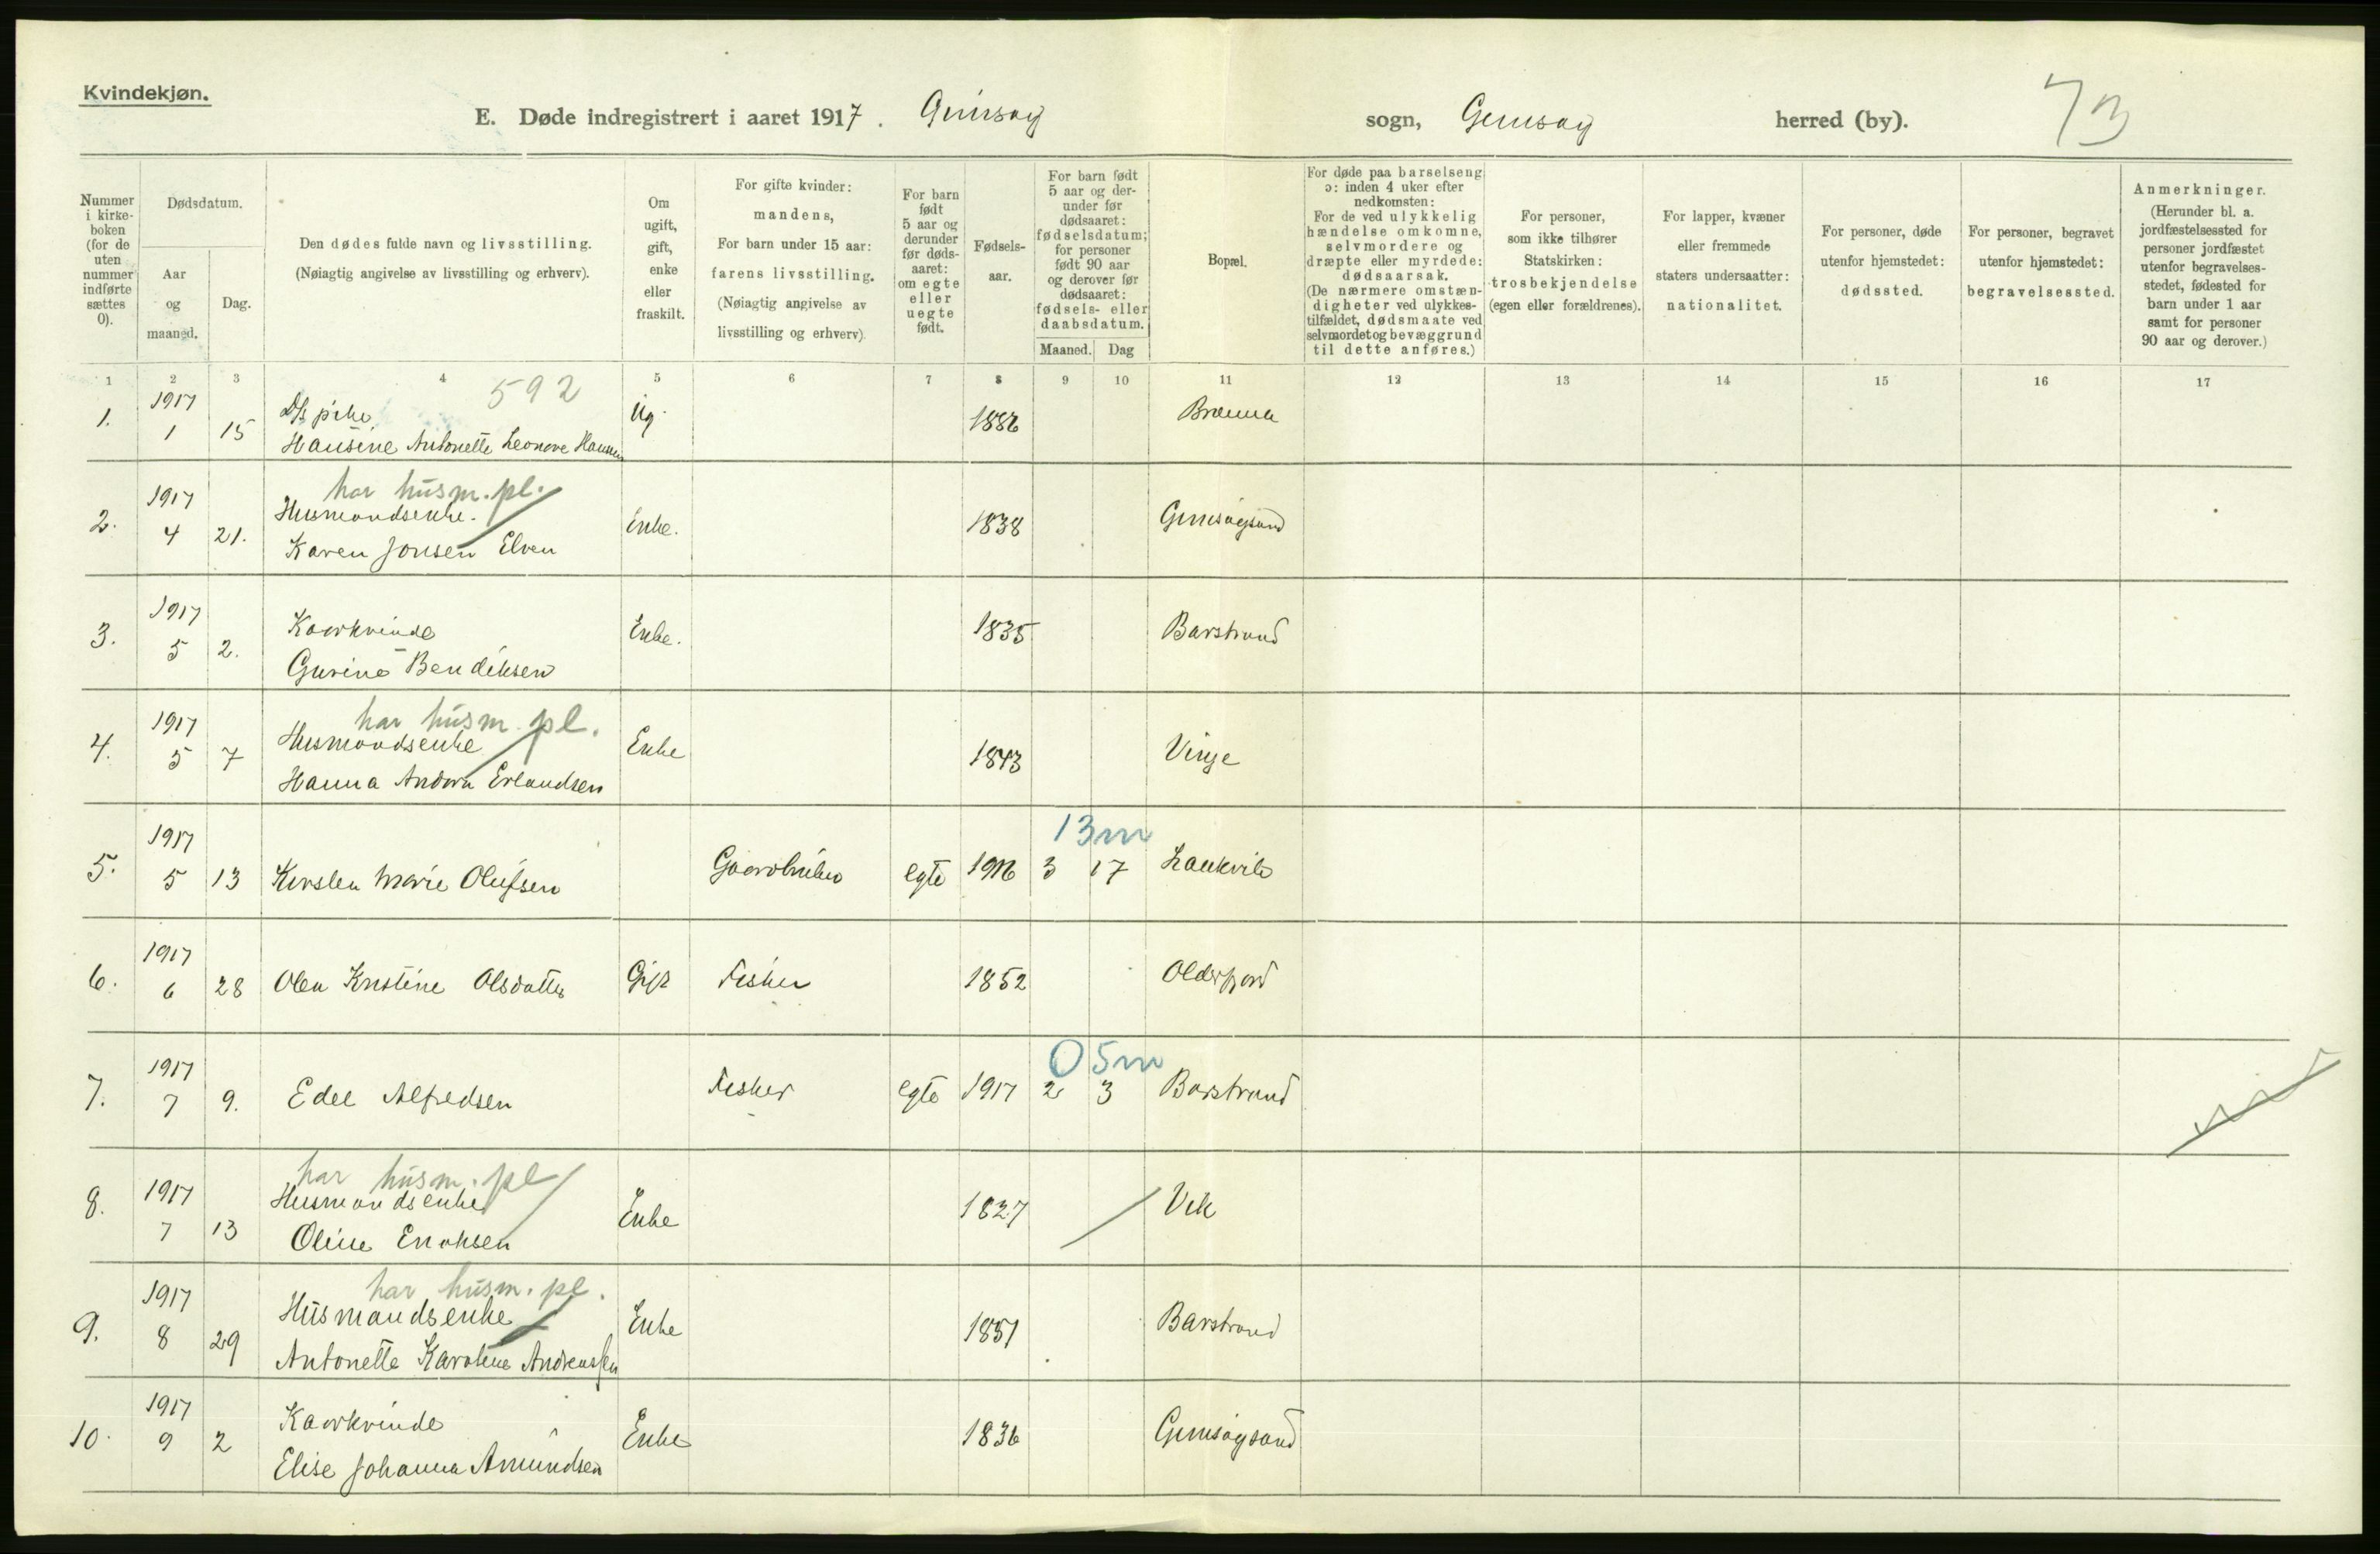 Kvindekjøn.
E. Døde indregistrert i aaret 1917. Gimsøy sogn, Gimsøy herred (by).
73
Nummer i kirkeboken (for de uten nummer indførte sættes 0).
Dødsdatum.
Aar og maaned.
Dag.
Den dødes fulde navn og livsstilling.
(Nøiagtig angivelse av livsstilling og erhverv).
Om ugift, gift, enke eller fraskilt.
For gifte kvinder: mandens,
For barn under 15 aar: farens livsstilling.
(Nøiagtig angivelse av livsstilling og erhverv).
For barn født 5 aar og derunder før dødsaaret: om egte eller uegte født.
Fødselsaar.
For barn født 5 aar og derunder før dødsaaret: fødselsdatum; for personer født 90 aar og derover før dødsaaret: fødsels- eller daabsdatum.
Maaned. Dag
Bopæl.
For døde paa barselseng ɔ: inden 4 uker efter nedkomsten:
For de ved ulykkelig hændelse omkomne, selvmordere og dræpte eller myrdede: dødsaarsak.
(De nærmere omstændigheter ved ulykkestilfældet, dødsmaate ved selvmordet og bevæggrund til dette anføres.)
For personer, som ikke tilhører Statskirken: trosbekjendelse (egen eller forældrenes).
For lapper, kvæner eller fremmede staters undersaatter: nationalitet.
For personer, døde utenfor hjemstedet: dødssted.
For personer, begravet utenfor hjemstedet: begravelsessted.
Anmerkninger.
(Herunder bl. a. jordfæstelsessted for personer jordfæstet utenfor begravelsesstedet, fødested for barn under 1 aar samt for personer 90 aar og derover.)
1 2 3 4 5 6 7 8 9 10 11 12 13 14 15 16 17
592
1. 1917 1 15 pike Ug. 1886 Brenna
Hansine Antonette Leonore Hansen
har husm. pl.
2. 1917 4 21. Husmandsenke. Enke. 1838 Gimsøysand
Karen Jonsen Elven
3. 1917 5 2. Kaarkvinde Enke. 1835 Barstrand
Gurine Bendiksen
har husm. pl.
4. 1917 5 7 Husmandsenke Enke 1843 Vinje
Hanna Andora Erlandsen
13m
5. 1917 5 13 Kirsten Marie Olufsen Gaardbruker egte 1916 3 17 Laukvik
6. 1917 6 28 Olea Kristine Olsdatter Gift Fisker 1852 Olderfjord
05m
7. 1917 7 9. Edel Alfredsen Fisker egte 1917 2 3 Barstrand
har husm. pl
8. 1917 7 13 Husmandsenke Enke 1827 Vik
Oline Enoksen
har husm. pl.
9. 1917 8 29 Husmandsenke Enke 1851 Barstrand
Antonette Karoline Andreassen
10. 1917 9 2 Kaarkvinde Enke 1836 Gimsøysand
Elise Johanna Amundsen